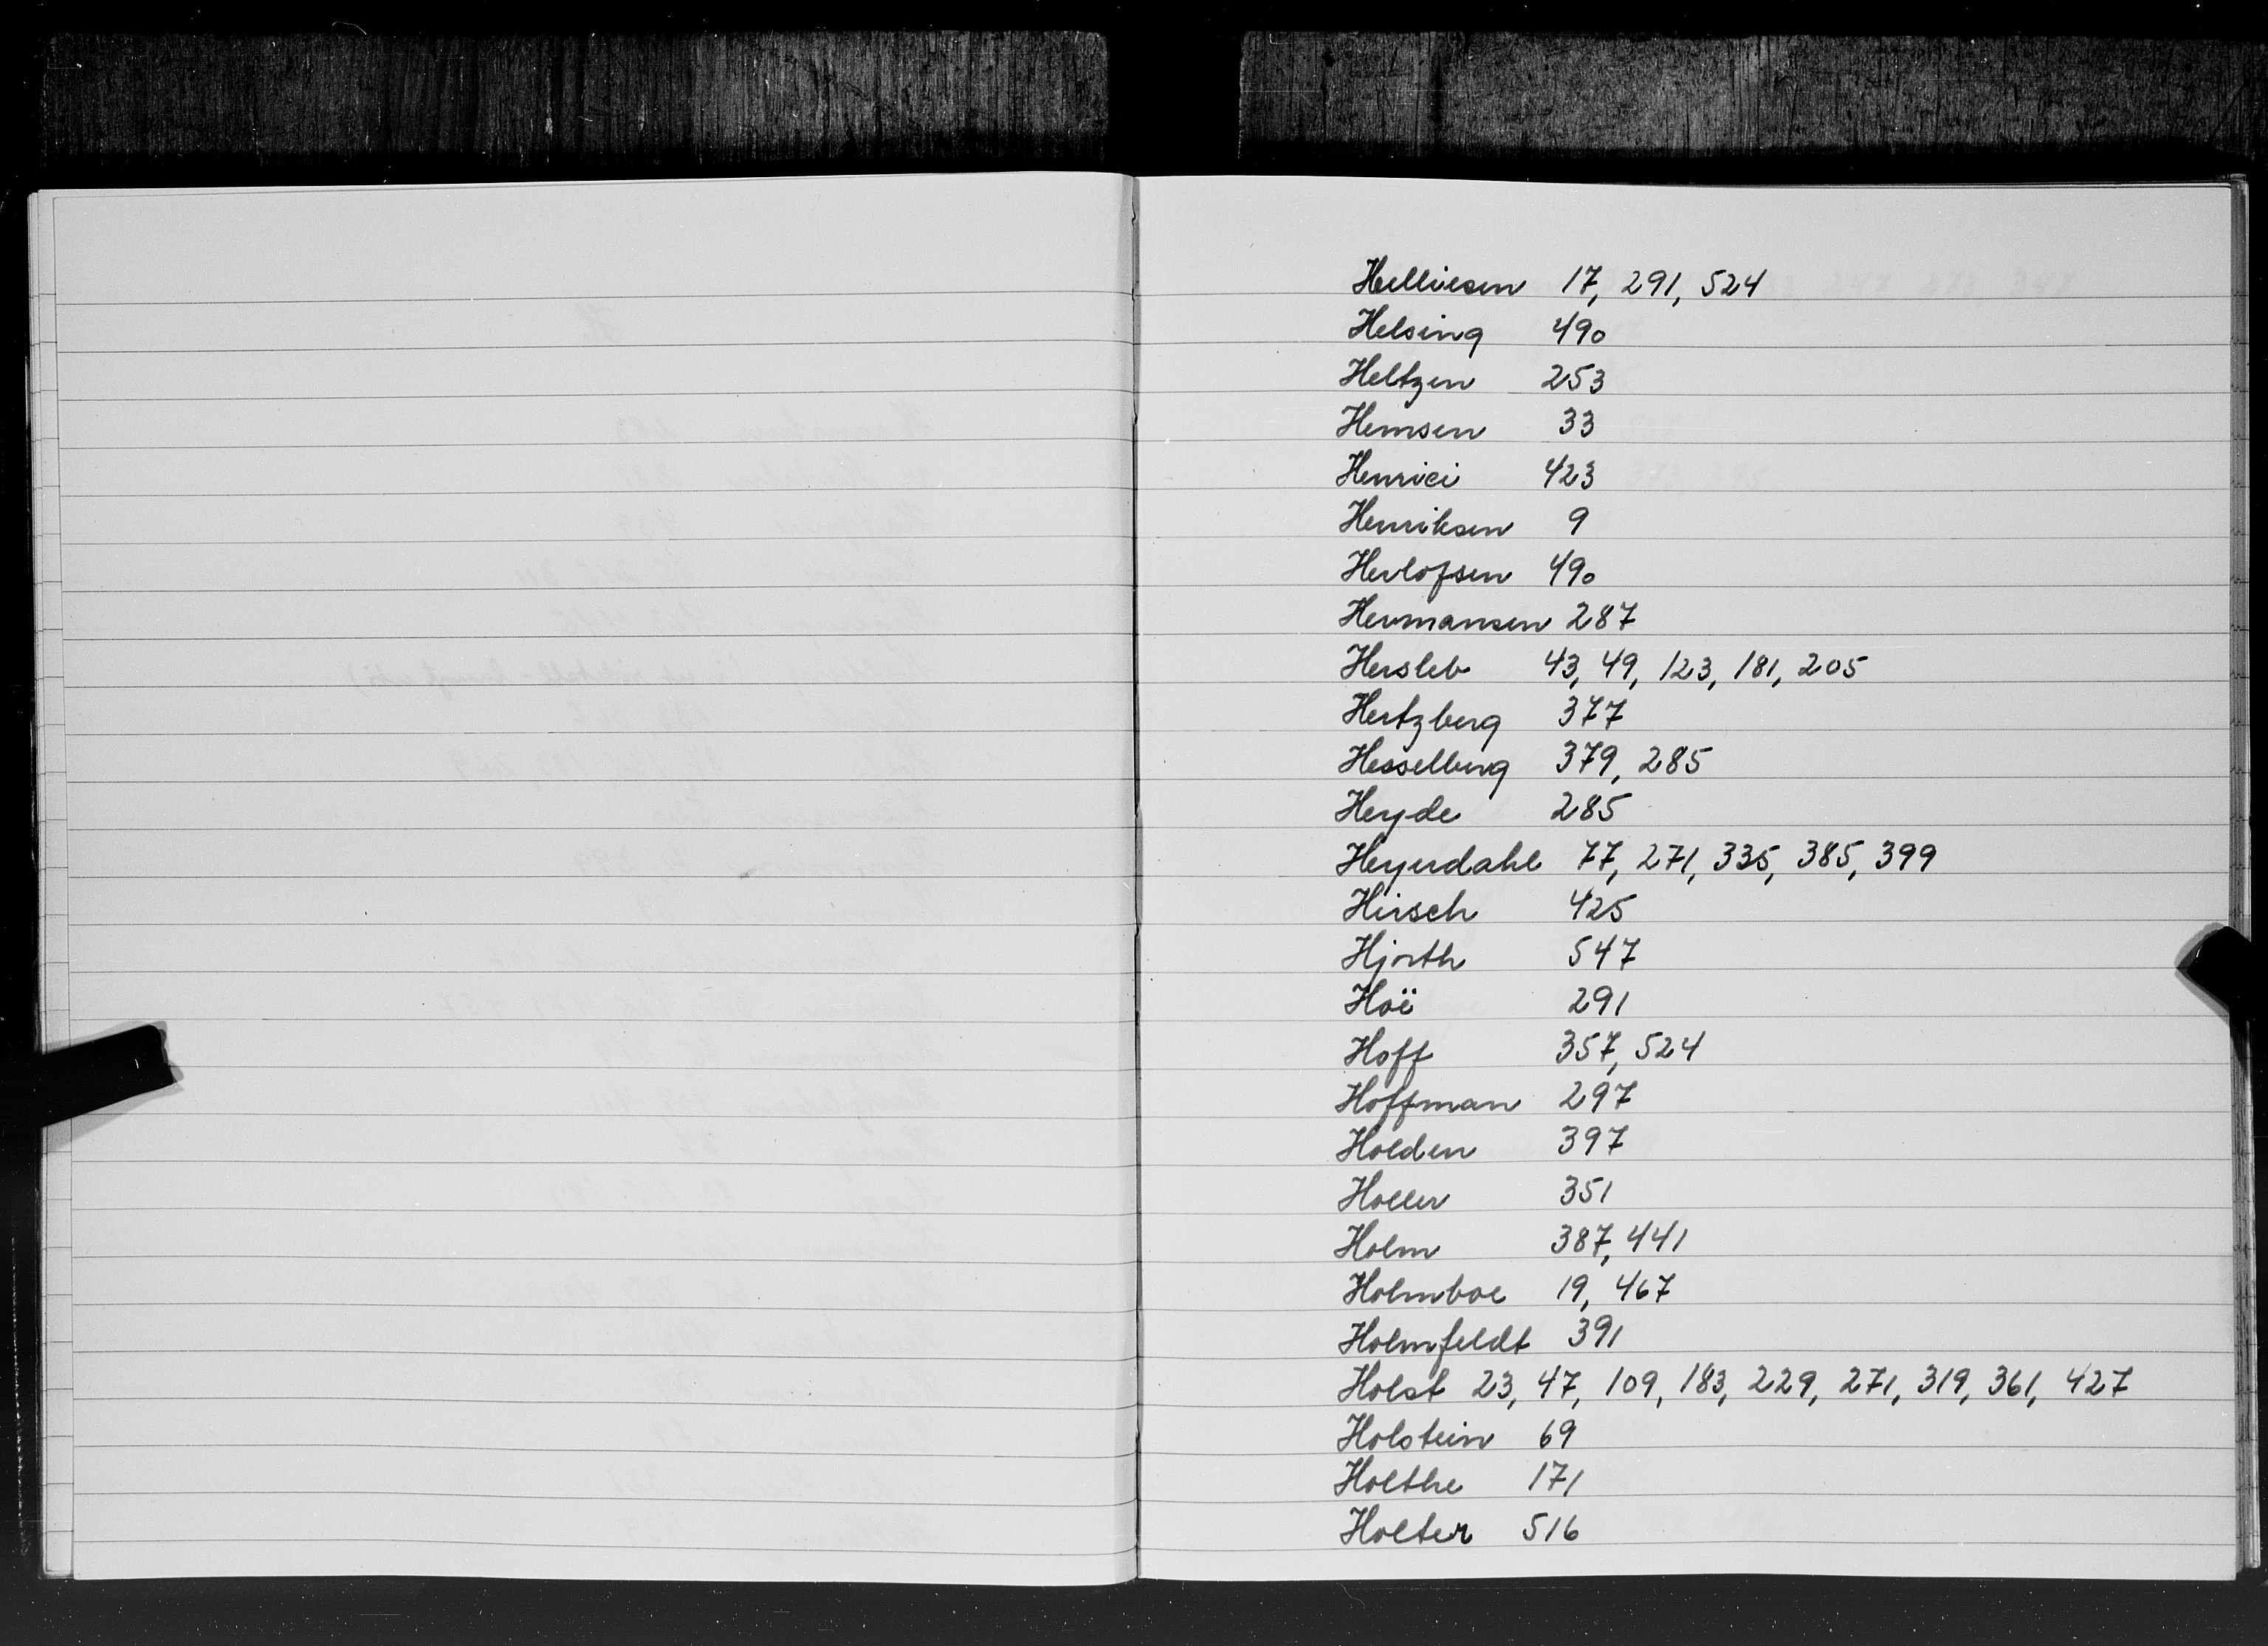 Helliesen 17, 291, 524
Helsing 490
Heltzen 253
Hemsen 33
Henrici 423
Henriksen 9
Herlofsen 490
Hermansen 287
Hersleb 43, 49, 123, 181, 205
Hertzberg 377
Hesselberg 379, 285
Heyde 285
Heyerdahl 77, 271, 335, 385, 399
Hirsch 425
Hjorth 547
Hoë 291
Hoff 357, 524
Hoffman 297
Holden 397
Holler 351
Holm 387, 441
Holmboe 19, 467
Holmfeldt 391
Holst 23, 47, 109, 183, 229, 271, 319, 361, 427
Holstein 69
Holthe 171
Holter 516